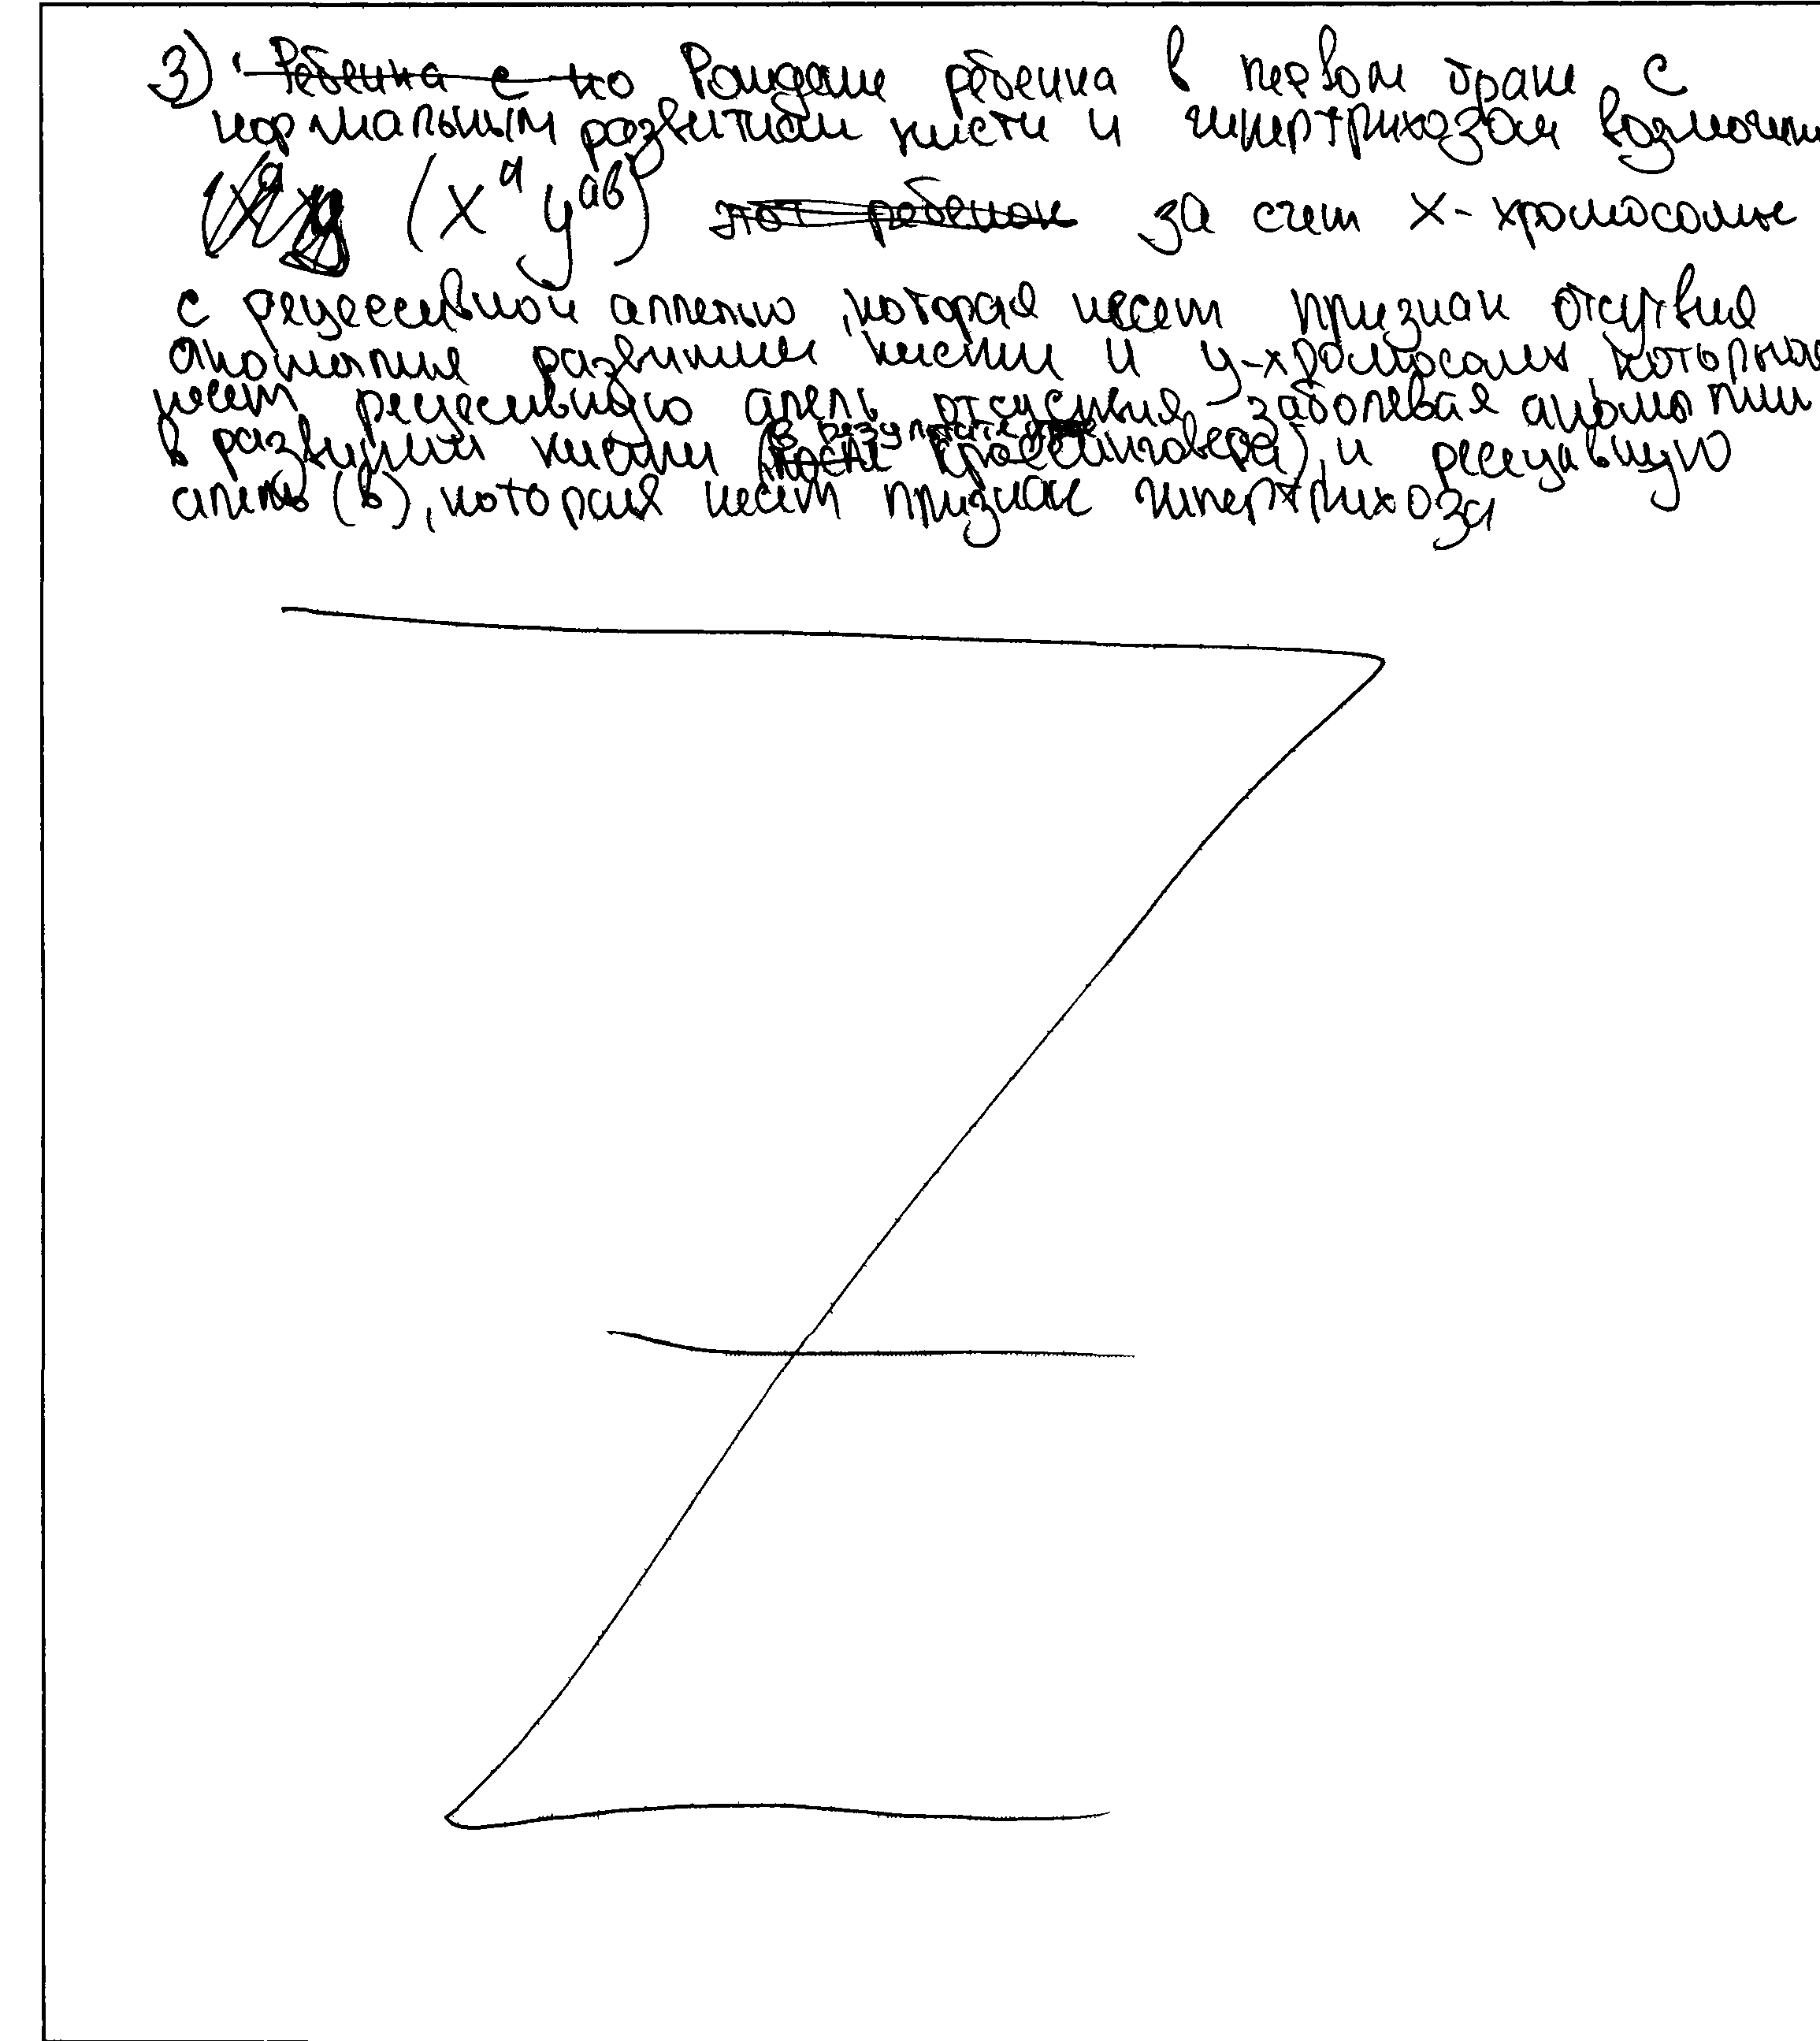 3) Ребенка с но Рождение ребенка в первом браке с
нормальным развитием кисти и гипертрихозом возможен
(X^a y^ab) этот ребенок за счет X-хромосомы
с рецессивной аллелью, которая несет признак отсутвия
аномалия развития кисти и y-хромосомы, которая
несет рецесивную алель отсуствия заболевая аномалии
в развитии кисти (в результате кроссинговера), и рецесивную
алель (b), которая несет признак гипертрихоза